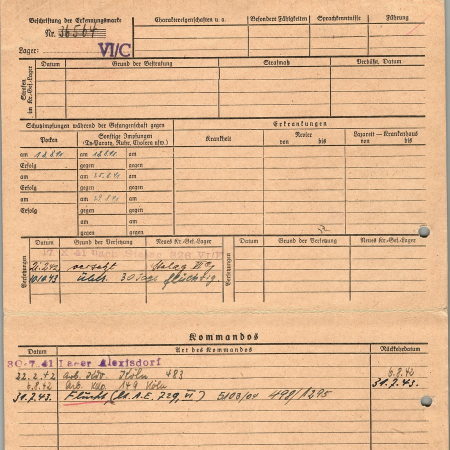 Beschriftung der Erkennungsmarke
Nr. 36564
Charaktereigenschaften u. a.
Besondere Fähigkeiten
Sprachkenntnisse
Führung
Lager: VI/C
Strafen im Kr.-Gef.-Lager
Datum
Grund der Bestrafung
Strafmaß
Verbüßt, Datum
Schutzimpfungen während der Gefangenschaft gegen
Erkrankungen
Pocken
Sonstige Impfungen
(Ty-Paraty, Ruhr, Cholera usw.)
Krankheit
Revier
von bis
Lazarett — Krankenhaus
von bis
am 1.8.41 am 18.8.41 am
Erfolg gegen gegen
am am 25.8.41 am
Erfolg gegen gegen
am am am
Erfolg gegen gegen
am am
gegen gegen
Versetzungen
Datum
Grund der Versetzung
Neues Kr.-Gef.-Lager
Versetzungen
Datum
Grund der Versetzung
Neues Kr.-Gef.-Lager
21.2.42 versetzt Stalag VI G
10.10.43 30 Tage flüchtig.
Kommandos
Datum
Art des Kommandos
Rückkehrdatum
30.7.41 Lager Alexisdorf
22.2.42 Arb. Kdo. Köln 483 6.8.42
6.8.42 Arb. Kdo. 149 Köln 31.7.43.
31.7.43. Flucht 5103/04 498/1295